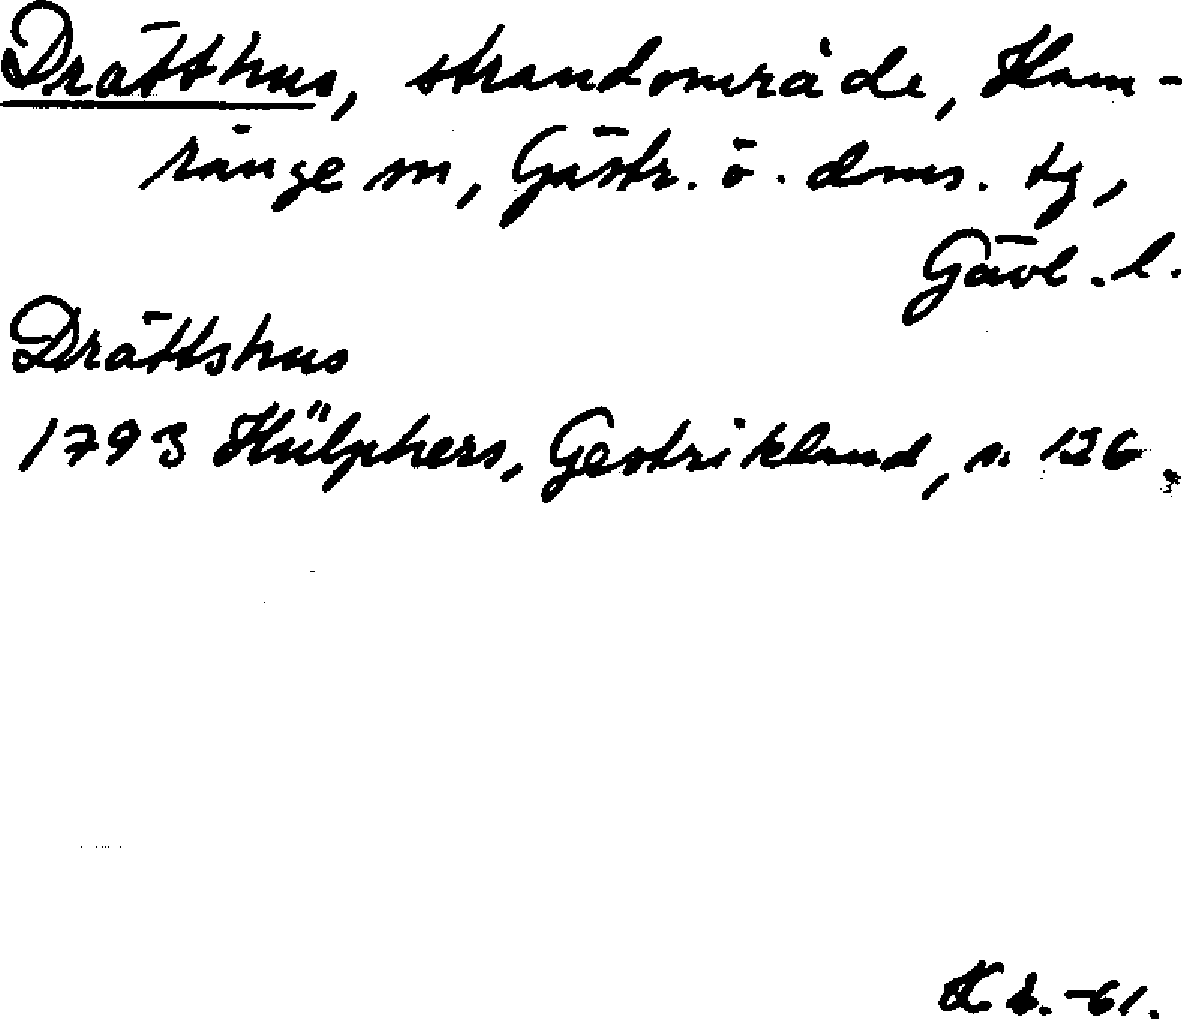 Drätthus, strandområde, Ham-
rånge sn, Gästr. ö. doms. tg,
Gävl. l.
Drättshus
1793 Hülphers, Gestrikland, s. 126.
K b. -61.